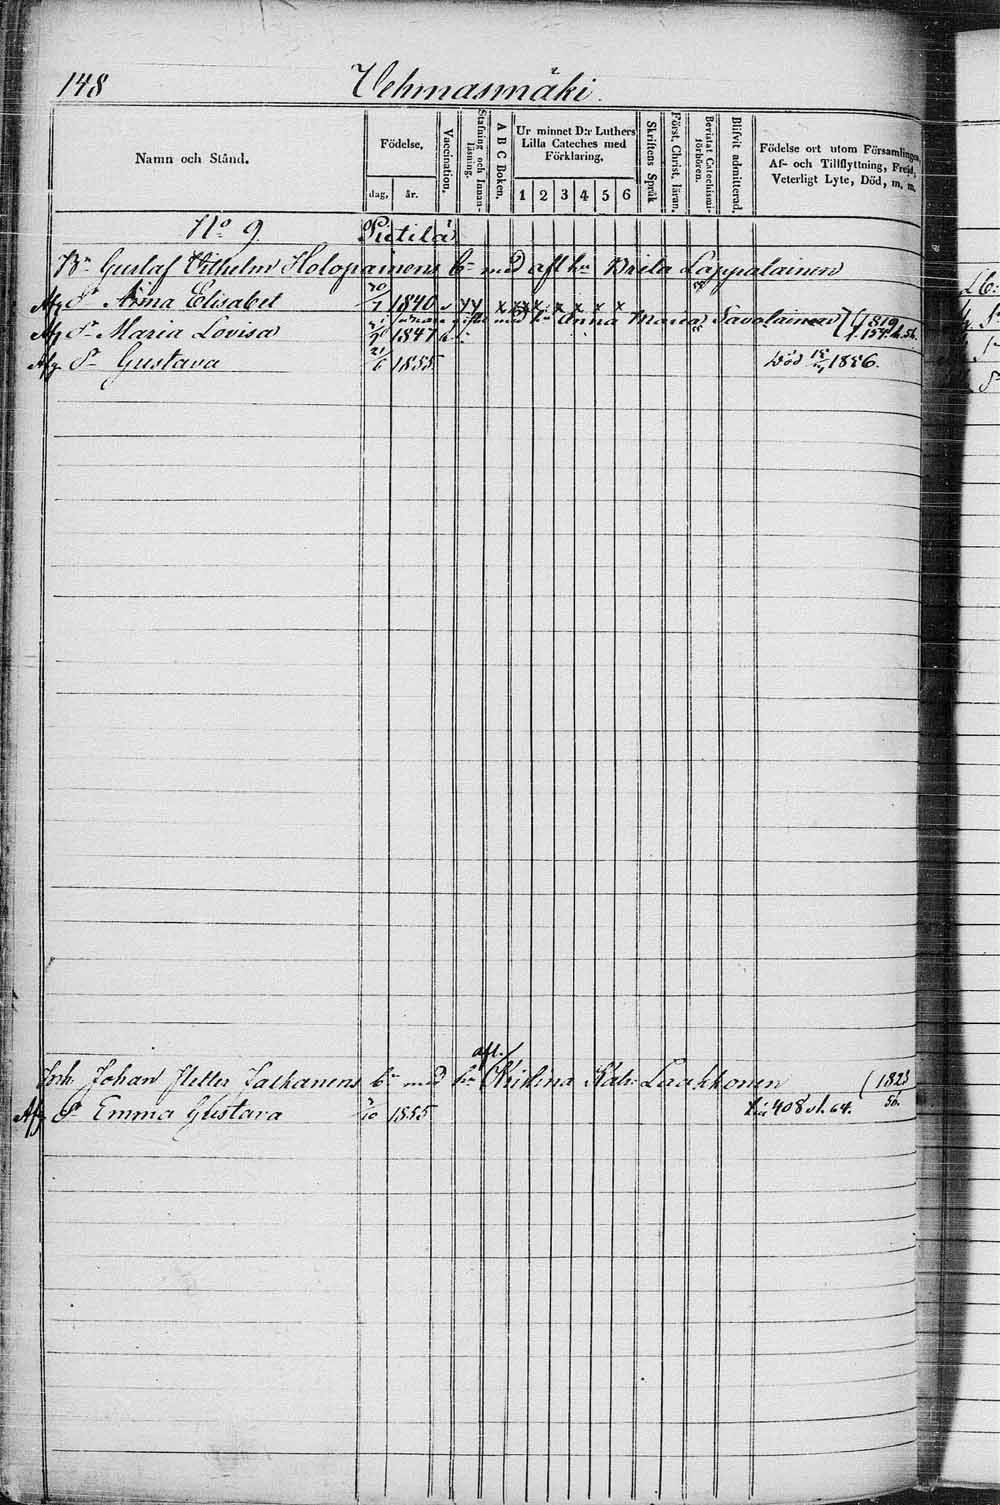 148 Vehmasmäki.
Namn och Stånd.
Födelse.
dag. år.
Vaccination.
Stafning och Innanläsning.
A B C Boken.
Ur minnet D:r Luthers Lilla Cateches med Förklaring.
1 2 3 4 5 6
Skriftens Språk
Först. Christ. läran.
Bevistat Catechismi-förhören.
Blifvit admitterad.
Födelse ort utom Församlingen, Af- och Tillflyttning, Freid, Veterligt Lyte, Död, m. m.
No 9. Pietilä
Bn Gustaf Vilhelm Holopainens bn med afl hu Brita Lappalainen
Afg Dr Anna Elisabet 1840 v y y x x x x x x x x
med hu Anna Maria Savolainen (1819
Afg Dr Maria Lovisa 1847
Afg. Dr Gustava 21/6 1855. död 1856.
afl.
Inh. Johan Petter Jalkanens bn med hu Kristina Kath: Laakkonen (1823
Afg Dr Emma Gustava /10 1855 till 408 vl. 64. 56.